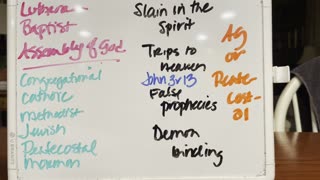 Lutheran
Baptist
Assembly of God
Congregational
Catholic
Methodist
Jewish
Pentecostal
Mormon
Slain in the
Spirit
Trips to
heaven
John 3v13
False
prophecies
Demon
binding
AG
or
Pente-
cost-
al